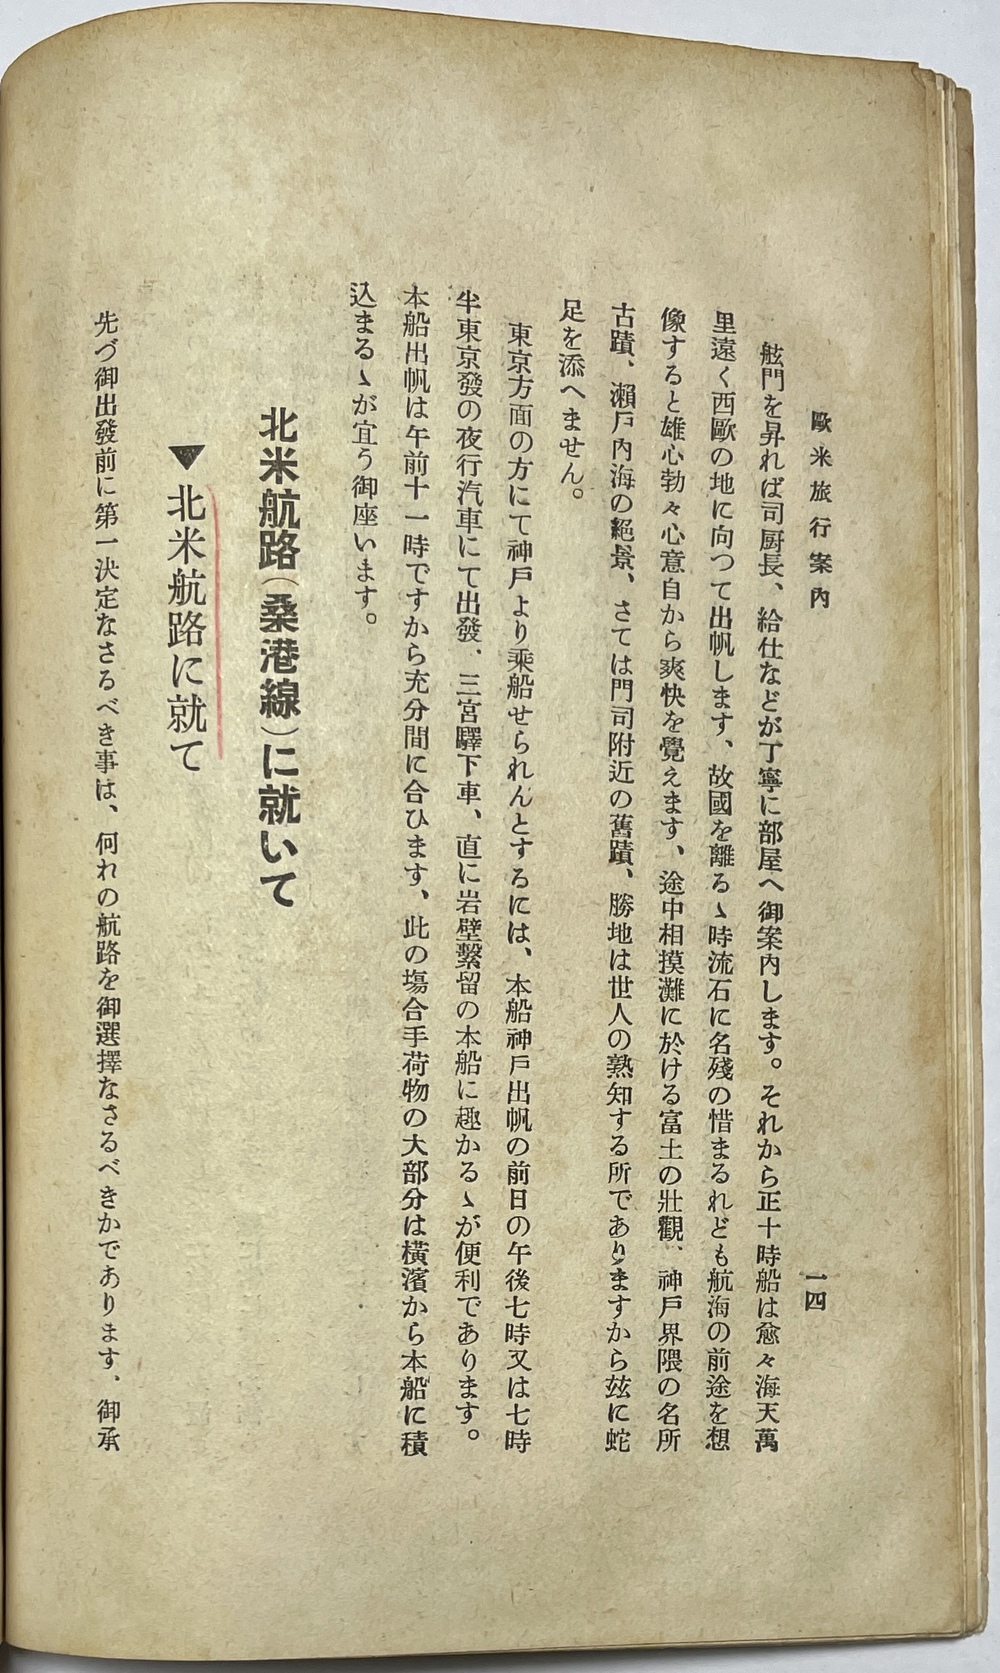 歐米旅行案內
一四
舷門を昇れば司厨長、給仕などが丁寧に部屋へ御案內します。それから正十時船は愈々海天萬
里遠く西歐の地に向つて出帆します、故國を離るゝ時流石に名殘の惜まるれども航海の前途を想
像すると雄心勃々心意自から爽快を覺えます、途中相摸灘に於ける富士の壯觀、神戶界隈の名所
古蹟、瀨戶內海の絕景、さては門司附近の舊蹟、勝地は世人の熟知する所でありますから玆に蛇
足を添へません。
東京方面の方にて神戶より乘船せられんとするには、本船神戶出帆の前日の午後七時又は七時
半東京發の夜行汽車にて出發、三宮驛下車、直に岩壁繫留の本船に趣かるゝが便利であります。
本船出帆は午前十一時ですから充分間に合ひます、此の塲合手荷物の大部分は橫濱から本船に積
込まるゝが宜う御座います。
北米航路(桑港線)に就いて
▼北米航路に就て
先づ御出發前に第一決定なさるべき事は、何れの航路を御選擇なさるべきかであります、御承